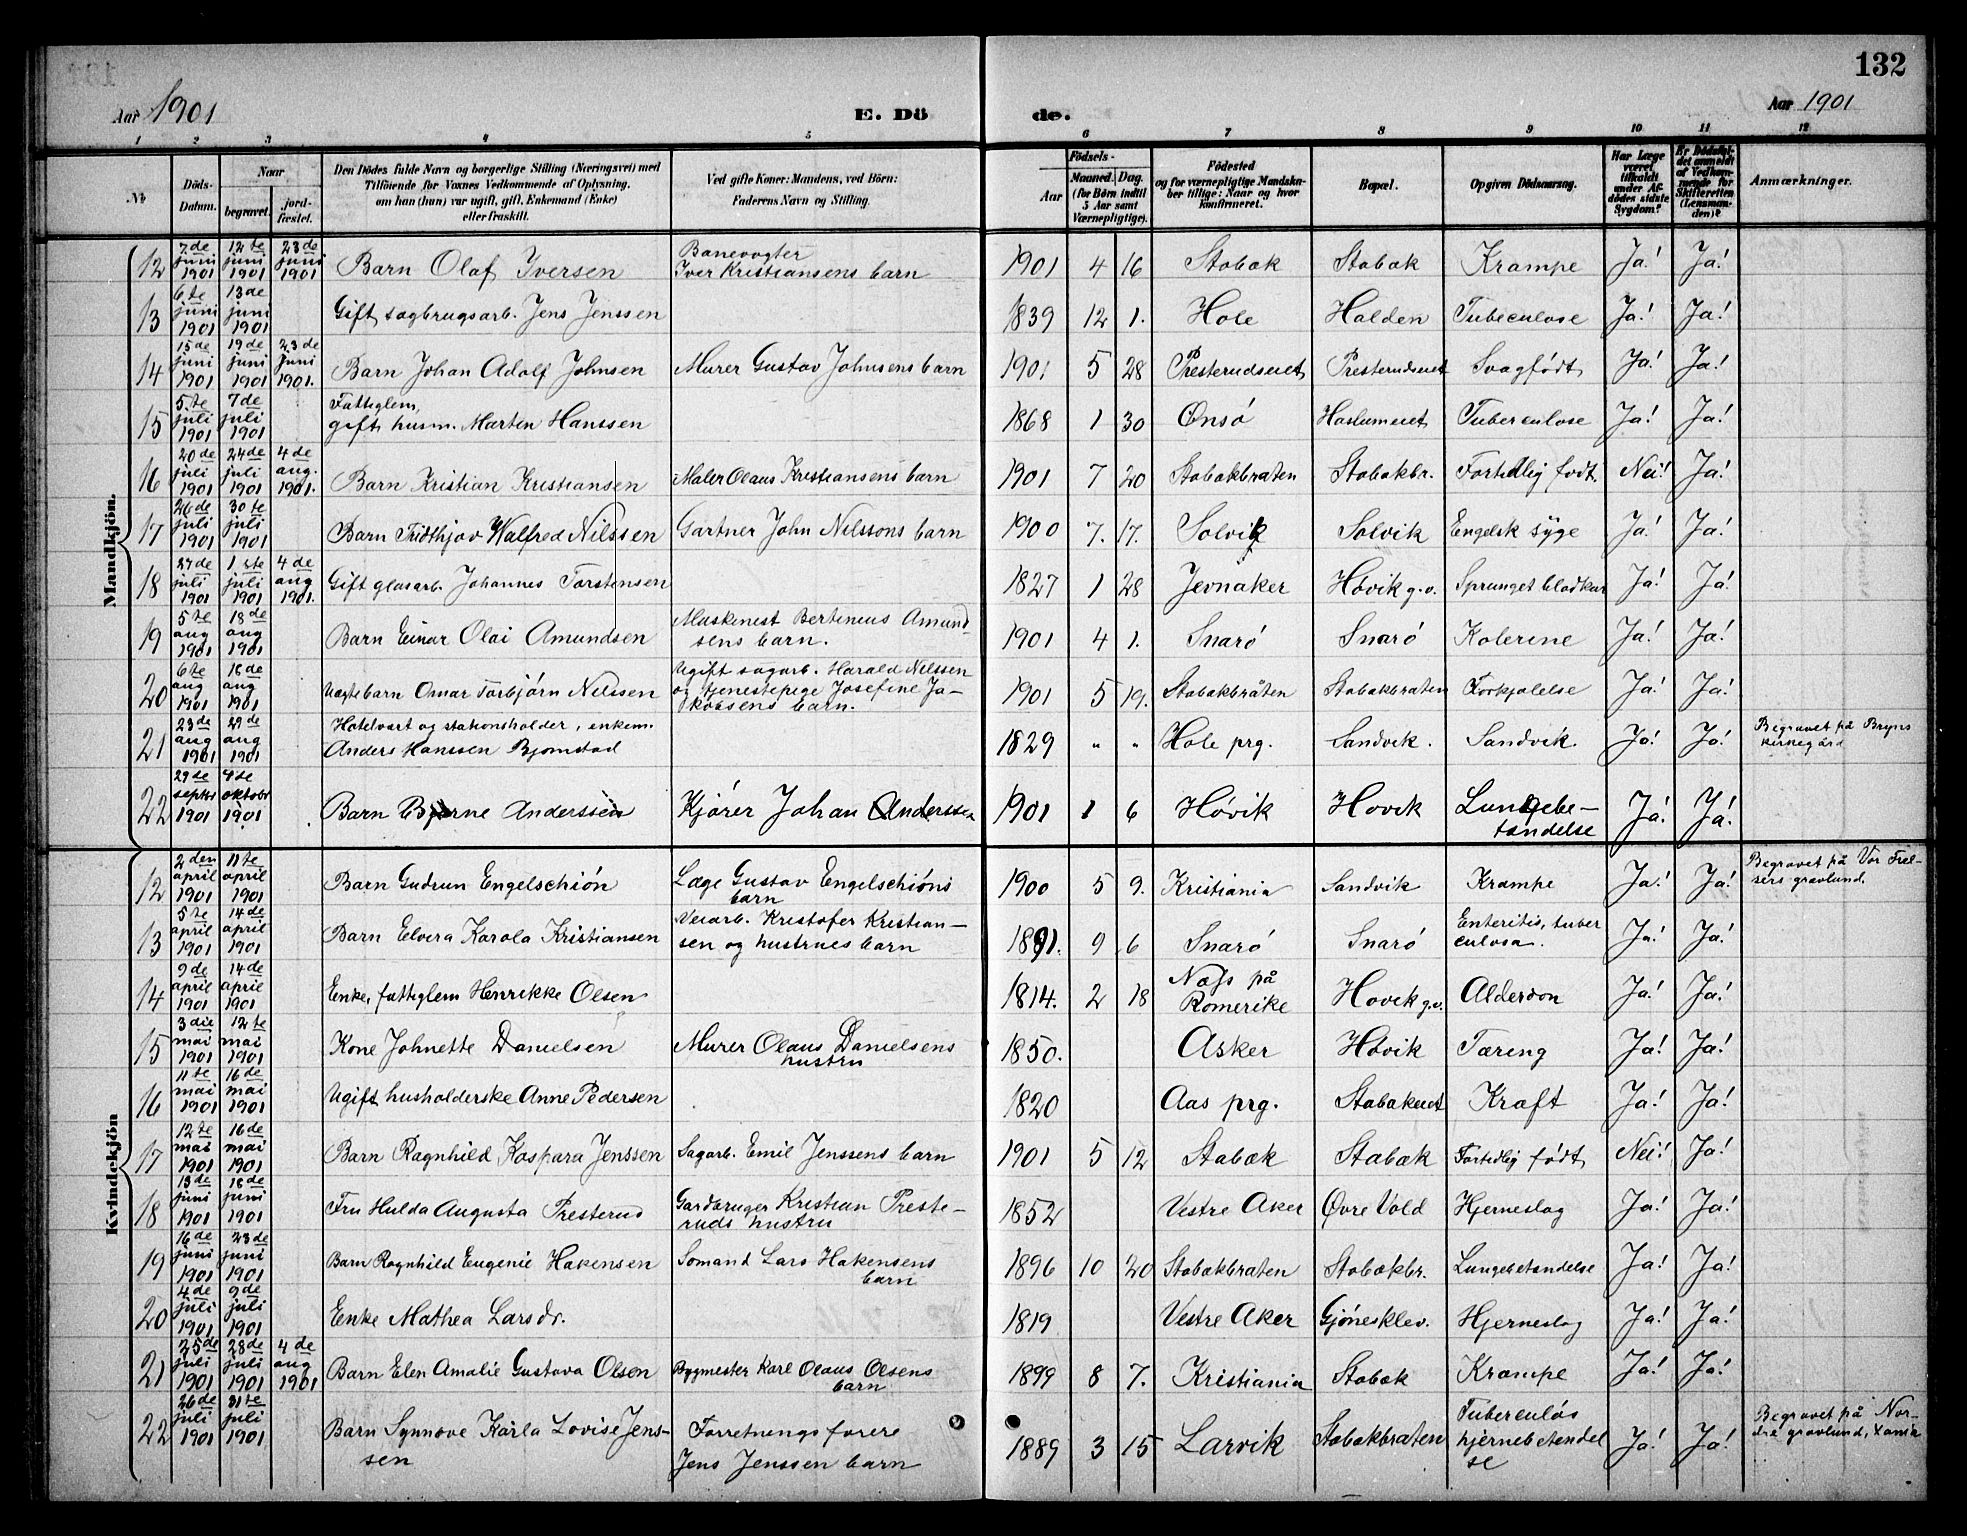 132
Aar 1901 E. Dö de. Aar 1901
1 2 3 4 5 6 7 8 9 10 11 12
No. Döds-Datum. Naar begravet. jord-fæstet. Den Dödes fulde Navn og borgerlige Stilling (Næringsvei) med Tilföiende for Voxnes Vedkommende af Oplysning, om han (hun) var ugift, gift, Enkemand (Enke) eller fraskilt. Ved gifte Koner: Mandens, ved Börn: Faderens Navn og Stilling. Födsels- Aar Maaned. Dag. (for Börn indtil 5 Aar samt Værnepligtige). Födested og for værnepligtige Mandska-ber tillige: Naar og hvor konfirmeret. Bopæl. Opgiven Dödsaarsag. Har Læge været tilkaldt under Af-dödes sidste Sygdom? Er Dödsfal-det anmeldt af Vedkom-mende for Skifteretten (Lensman-den)? Anmærkninger.
Mandkjön.
12 7de juni 1901 12te juni 1901 23de juni 1901 Barn Olaf Iversen Banevogter Iver Kristiansens barn 1901 4 16 Stabæk Stabæk Krampe Ja! Ja!
13 6te juni 1901 13de juni 1901 Gift sagbrugsarb. Jens Jenssen 1839 12 1. Hole Halden Tubeculose Ja! Ja!
14 15de juni 1901 19de juni 1901 23de juni 1901. Barn Johan Adolf Johnsen Murer Gustav Johnsens barn 1901 5 28 Presterudseiet Presterudseiet Svagfødt Ja! Ja!
15 5te juli 1901 7de juli 1901 Fattiglem, gift husm. Marten Hanssen 1868 1 30 Onsö Haslumeiet Tuberculose Ja! Ja!
16 20de juli 1901 24de juli 1901 4de aug. 1901. Barn Kristian Kristiansen Maler Olaus Kristiansens barn 1901 7 20 Stabækbråten Stabækbr. Fortidlig født. Nei! Ja!
17 26de juli 1901 30te juli 1901 Barn Fridthjov Walfred Nilssen Gartner John Nilssons barn 1900 7. 17. Solvik Solvik Engelsk syge Ja! Ja!
18 27de juli 1901 1ste juli 1901 4de aug 1901. Gift glasarb. Johannes Torstensen 1827 1 28 Jevnaker Høvik g.v. Sprunget blodkar Ja! Ja!
19 5te aug 1901 18de aug 1901 Barn Einar Olai Amundsen Maskinist Bertinius Amund-sens barn. 1901 4 1. Snarö Snarö Kolerine Ja! Ja!
20 6te aug 1901 18de aug 1901 Uægte barn Omar Torbjörn Nilssen Ugift sagarb. Harald Nilssen og tjenestepige Josefine Ja-kobsens barn. 1901 5 19. Stabækbråten Stabækbråten Forkjølelse Ja! Ja!
21 23de aug 1901 29de aug 1901 Hotelvært og stationsholder, enkem. Anders Hanssen Bjornstad 1829 " " Hole prg. Sandvik. Sandvik. Ja! Ja! Begravet på Bryns kirkegård
22 29te septbr 1901 4te oktobr 1901 Barn Bjarne Anderssen Kjører Johan Anderssen 1901 1 6 Høvik Høvik Lungebe-tændelse Ja! Ja!
Kvindekjön
12 2den april 1901 11te april 1901 Barn Gudrun Engelschiön Læge Gustav Engelschiöns barn 1900 5 9. Kristiania Sandvik Krampe Ja! Ja! Begravet på Vor Frel-sers gravlund.
13 5te april 1901 14de april 1901 Barn Elvera Karola Kristiansen Veiarb. Kristofer Kristian-sen og hustrues barn 1891. 9 6 Snarö Snarö Enteritis, tuberculosa. Ja! Ja!
14 9de april 1901 14de april 1901 Enke, fattiglem Henrikke Olsen 1814. 2 18 Næs på Romerike Høvik g.v. Alderdom Ja! Ja!
15 3die mai 1901 12te mai 1901 Kone Johnette Danielsen Murer Olaus Danielsens hustru 1850. Asker Høvik Tæring Ja! Ja!
16 11te mai 1901 16de mai 1901 Ugift husholderske Anne Pedersen 1820 Aas prg. Stabækeiet Kræft Ja! Ja!
17 12te mai 1901 16de mai 1901 Barn Ragnhild Kaspara Jenssen Sagarb. Emil Jenssens barn 1901 5 12 Stabæk Stabæk Fortidlig født Nei! Ja!
18 13de juni 1901 18de juni 1901 Fru Hulda Augusta Presterud Gårdbruger Kristian Preste-ruds hustru 1852 Vestre Aker Øvre Vold Hjerneslag Ja! Ja!
19 16de juni 1901 23de juni 1901 Barn Ragnhild Eugenie Håkensen Sømand Lars Håkensens barn 1896 10 20 Stabækbråten Stabækbr. Lungebetændelse Ja! Ja!
20 4de juli 1901 9de juli 1901 Enke Mathea Larsdr. 1819 Vestre Aker Gjønesklev. Hjerneslag Ja! Ja!
21 25de juli 1901 28de juli 1901 4de aug 1901 Barn Elen Amalie Gustava Olsen Bygmester Karl Olaus Olsens barn 1899 8 7. Kristiania Stabæk Krampe Ja! Ja!
22 26de juli 1901 31te juli 1901 Barn Synnøve Karla Lovise Jens-sen Forretningsfører Jens Jenssen barn 1889 3 15 Larvik Stabækbråten Tuberculøs hjernebetændelse Ja! Ja! Begravet på Nor-dre gravlund, Xania